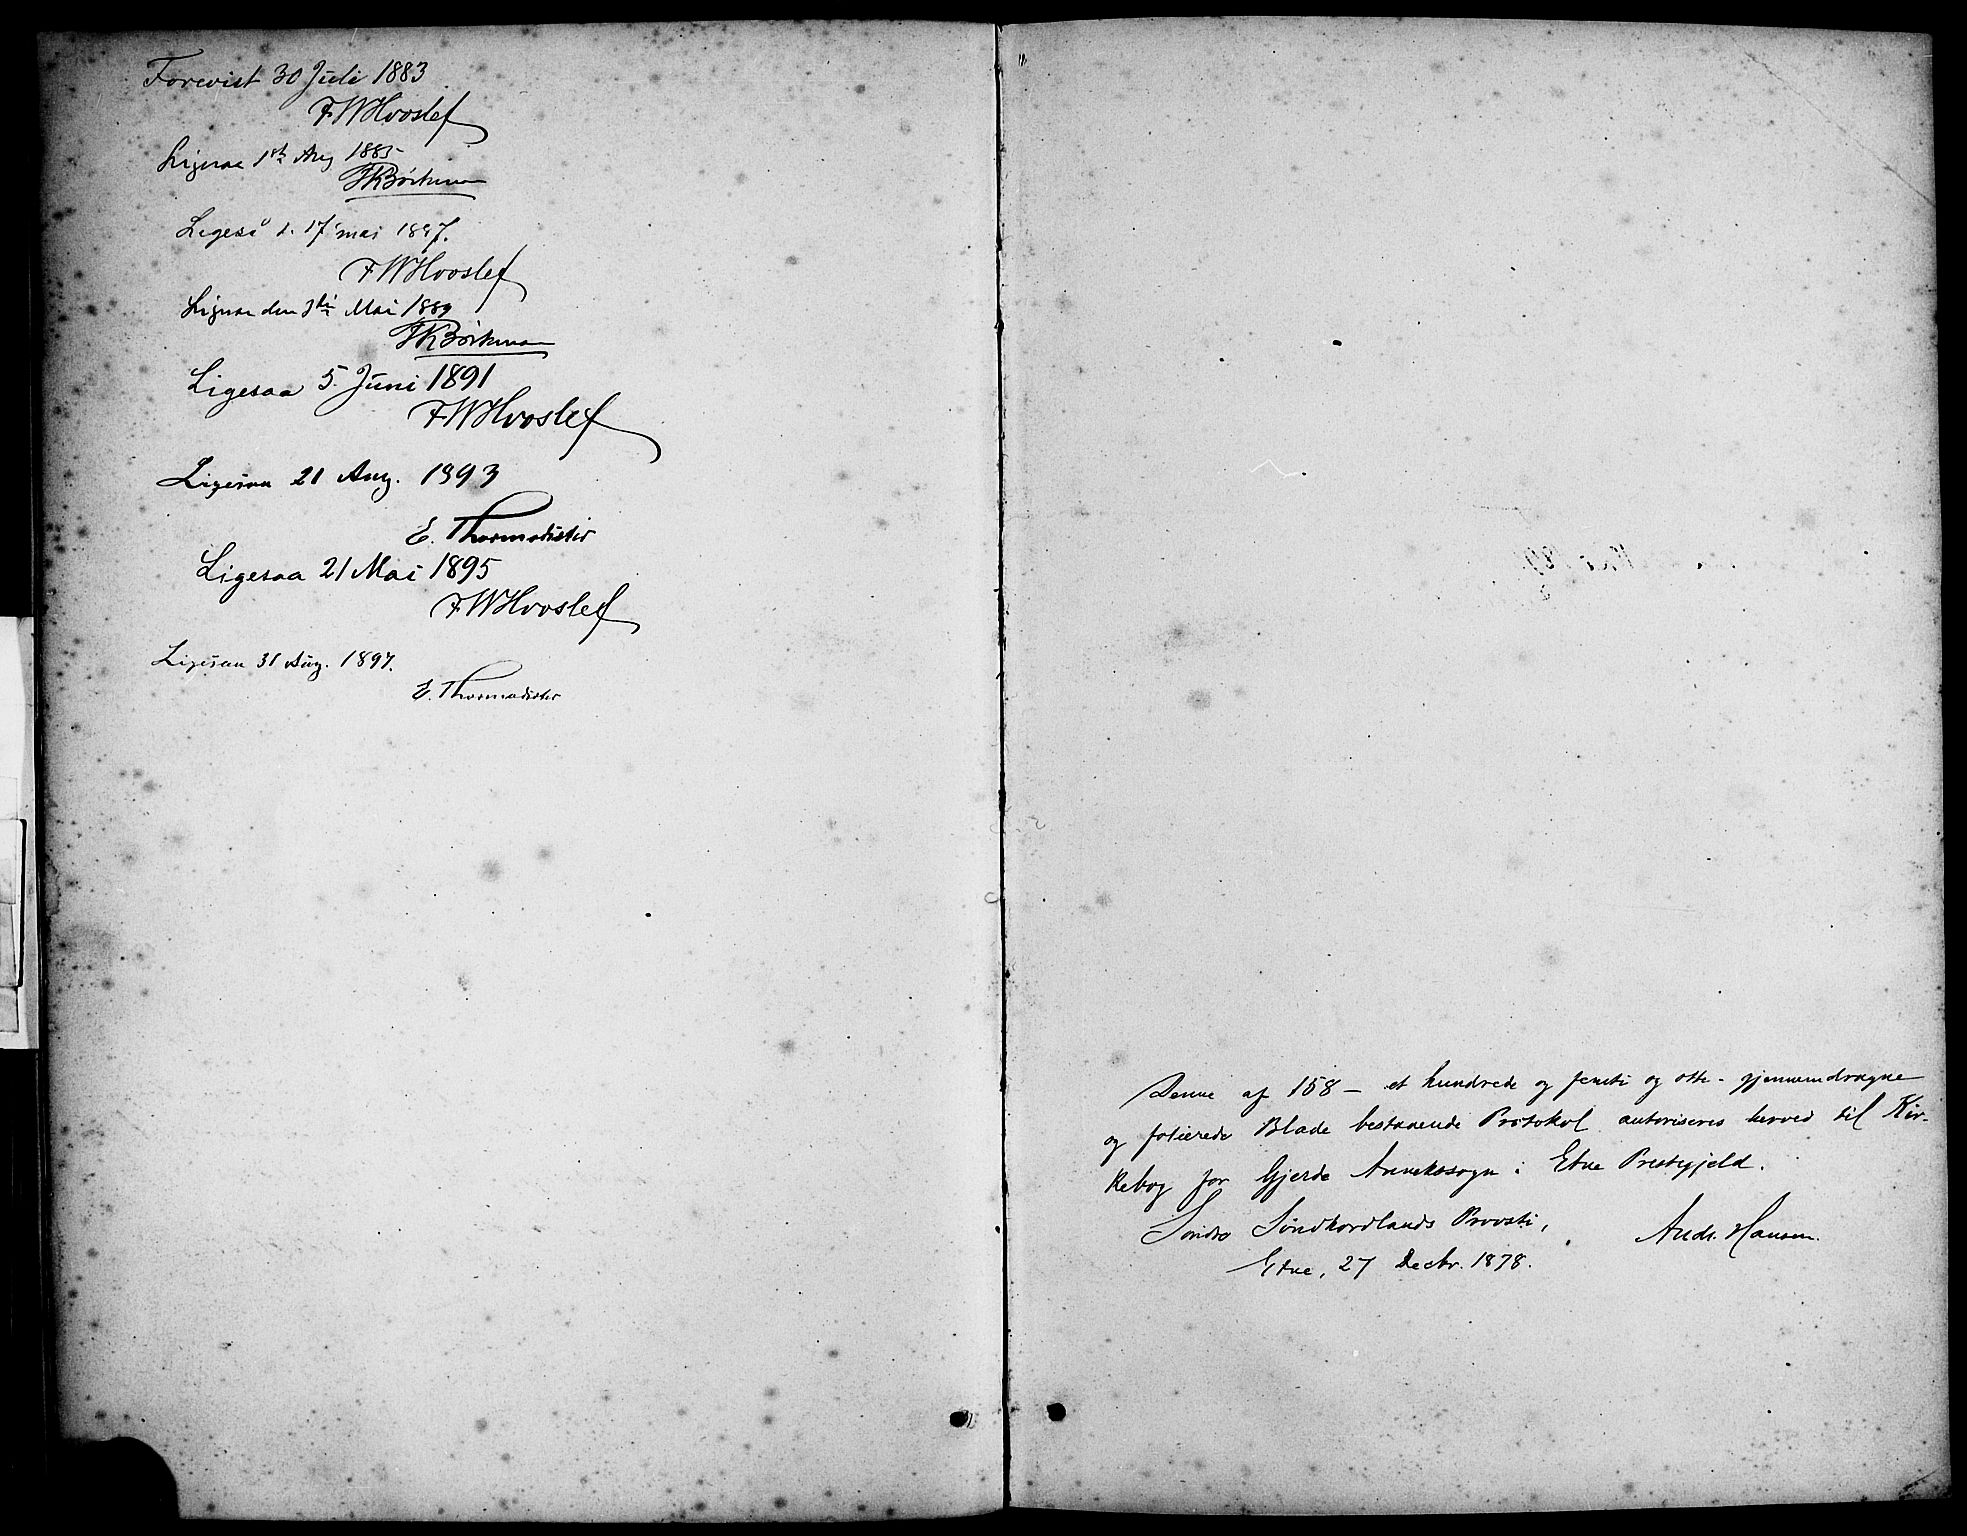 Forevist 30 Juli 1883
FWHvoslef
Ligesaa 1ste Aug 1885
Ligeså d. 17 mai 1887.
FWHvoslef
Ligesaa den 3die Mai 1889
Ligesaa 5. Juni 1891
FWHvoslef
Ligesaa 21 Aug. 1893
E. Thormodsæter
Ligesaa 21 Mai 1895
FWHvoslef
Ligesaa 31 Aug. 1897.
E. Thormodsæter
Denne af 158 – et hundrede og femti og otte – gjennemdragne
og folierede Blade bestaaende Protokol autoriseres herved til Kir-
kebog for Gjerde Annekssogn i Etne Prestegjeld.
Søndre Søndhordlands Provsti,
Etne, 27 Decbr. 1878.
Andr. Hansen.